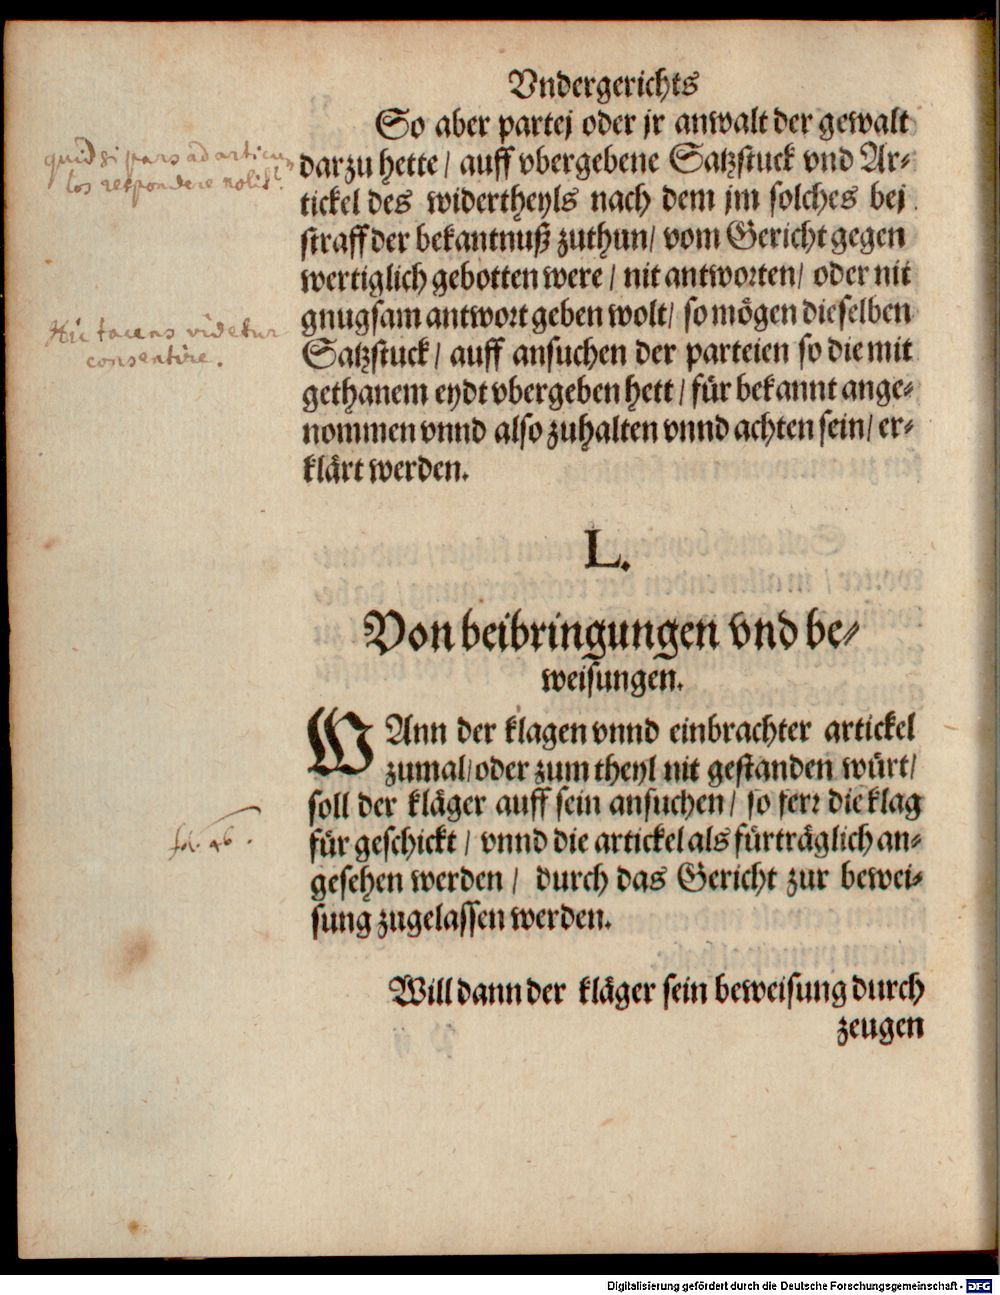 Vndergerichts
So aber partej oder jr anwalt der gewalt
darzu hette / auff vbergebene Satzstuck vnd Ar⸗
tickel des widertheyls nach dem jm solches bej
straff der bekantnuß zuthun / vom Gericht gegen
wertiglich gebotten were / nit antworten / oder nit
gnugsam antwort geben wolt / so mögen dieselben
Satzstuck / auff ansuchen der parteien so die mit
gethanem eydt vbergeben hett / für bekannt ange⸗
nommen vnnd also zuhalten vnnd achten sein / er⸗
klärt werden.
quid si pars ad articu
los respondere nolit?
Hic tacens videtur
consentire.
L.
Von beibringungen vnd be⸗
weisungen.
WAnn der klagen vnnd einbrachter artickel
zumal / oder zum theyl nit gestanden würt /
soll der kläger auff sein ansuchen / so ferr die klag
für geschickt / vnnd die artickel als fürträglich an⸗
gesehen werden / durch das Gericht zur bewei⸗
sung zugelassen werden.
Will dann der kläger sein beweisung durch
zeugen
Digitalisierung gefördert durch die Deutsche Forschungsgemeinschaft - DFG